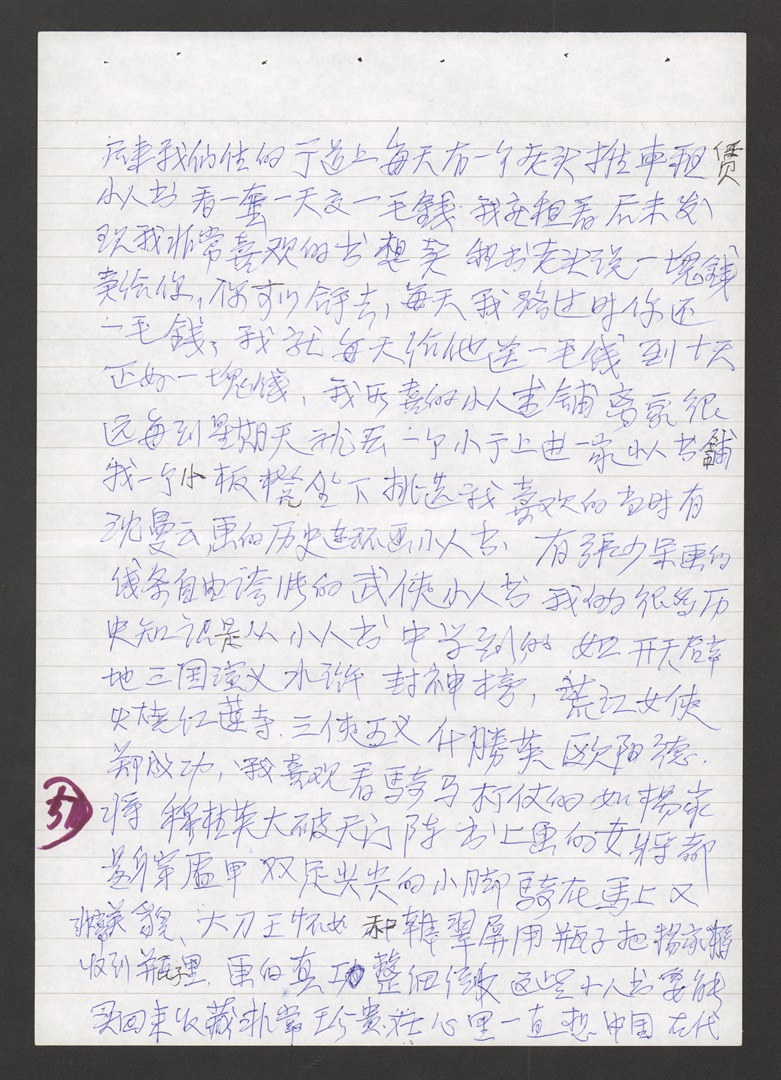 后来我们住的于道上每天有一个老头推车租赁
小人书 看一套一天交一毛錢 我就租看后来发
现我非常喜欢的书想买 租书老头说一塊錢
卖给你,你可以拿去,每天我路过时你还
一毛錢,我就每天给他送一毛钱到十天
正好一塊钱,我所喜的小人书铺离家很
远每到星期天就去一个小于上进一家小人书鋪
找一个小板櫈坐下挑选我喜欢的当时有
沈曼云画的历史连环画小人书、有張少呆画的
线条自由夸张的武侠小人书 我的很多历
史知识是从小人书中学到的 如開天辟
地三国演义水浒 封神榜,荒江女侠
火烧红莲寺.三侠五义 什勝英 欧阳德.
郑成功,我喜观看騎马打仗的如楊家
将 穆桂英大破天门阵 书上画的女将都
是身穿盔甲双足尖尖的小脚騎在馬上又
美貌、大刀王怀女 和 翠屏用瓶子把楊家将
收到瓶子里.画的真功整细緻 这些小人书要能
买回来收藏非常珍贵在心里一直想中国古代
51